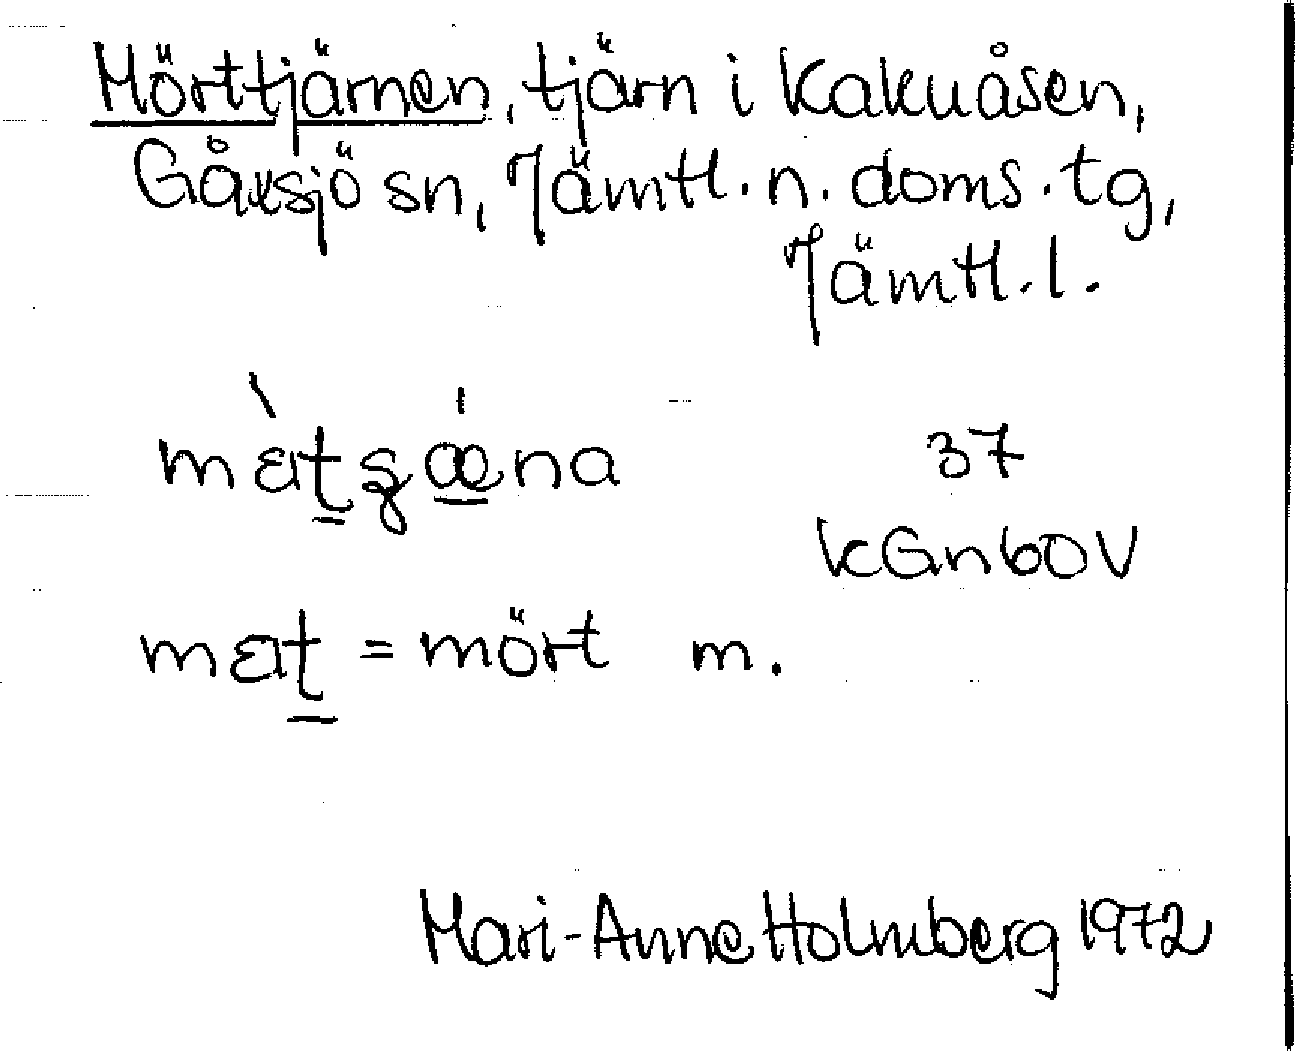 Mörttjärnen, tjärn i Kakuåsen,
Gåxsjö sn, Jämtl. n. doms. tg,
Jämtl. l.
37
kGn60V
= mört m.
Mari-Anne Holmberg 1972